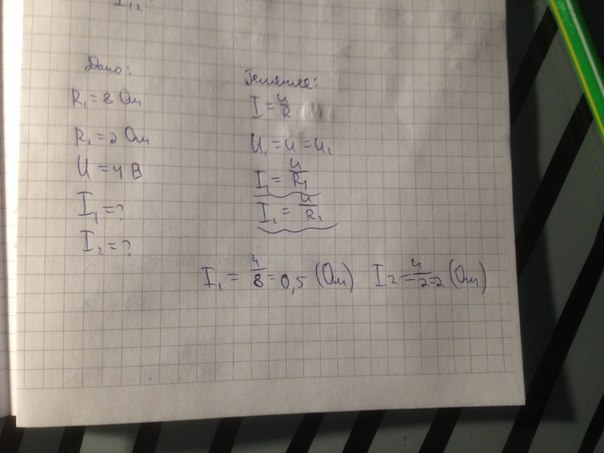 I₁₂
Дано:
R₁ = 8 Ом
R₂ = 2 Ом
U = 4 В
I₁ = ?
I₂ = ?
I = U/R
U₁ = U = U₂
I₁ = U/R₁
I₂ = U/R₂
I₁ = 4/8 = 0,5 (Ом) I₂ = 4/2 = 2 (Ом)